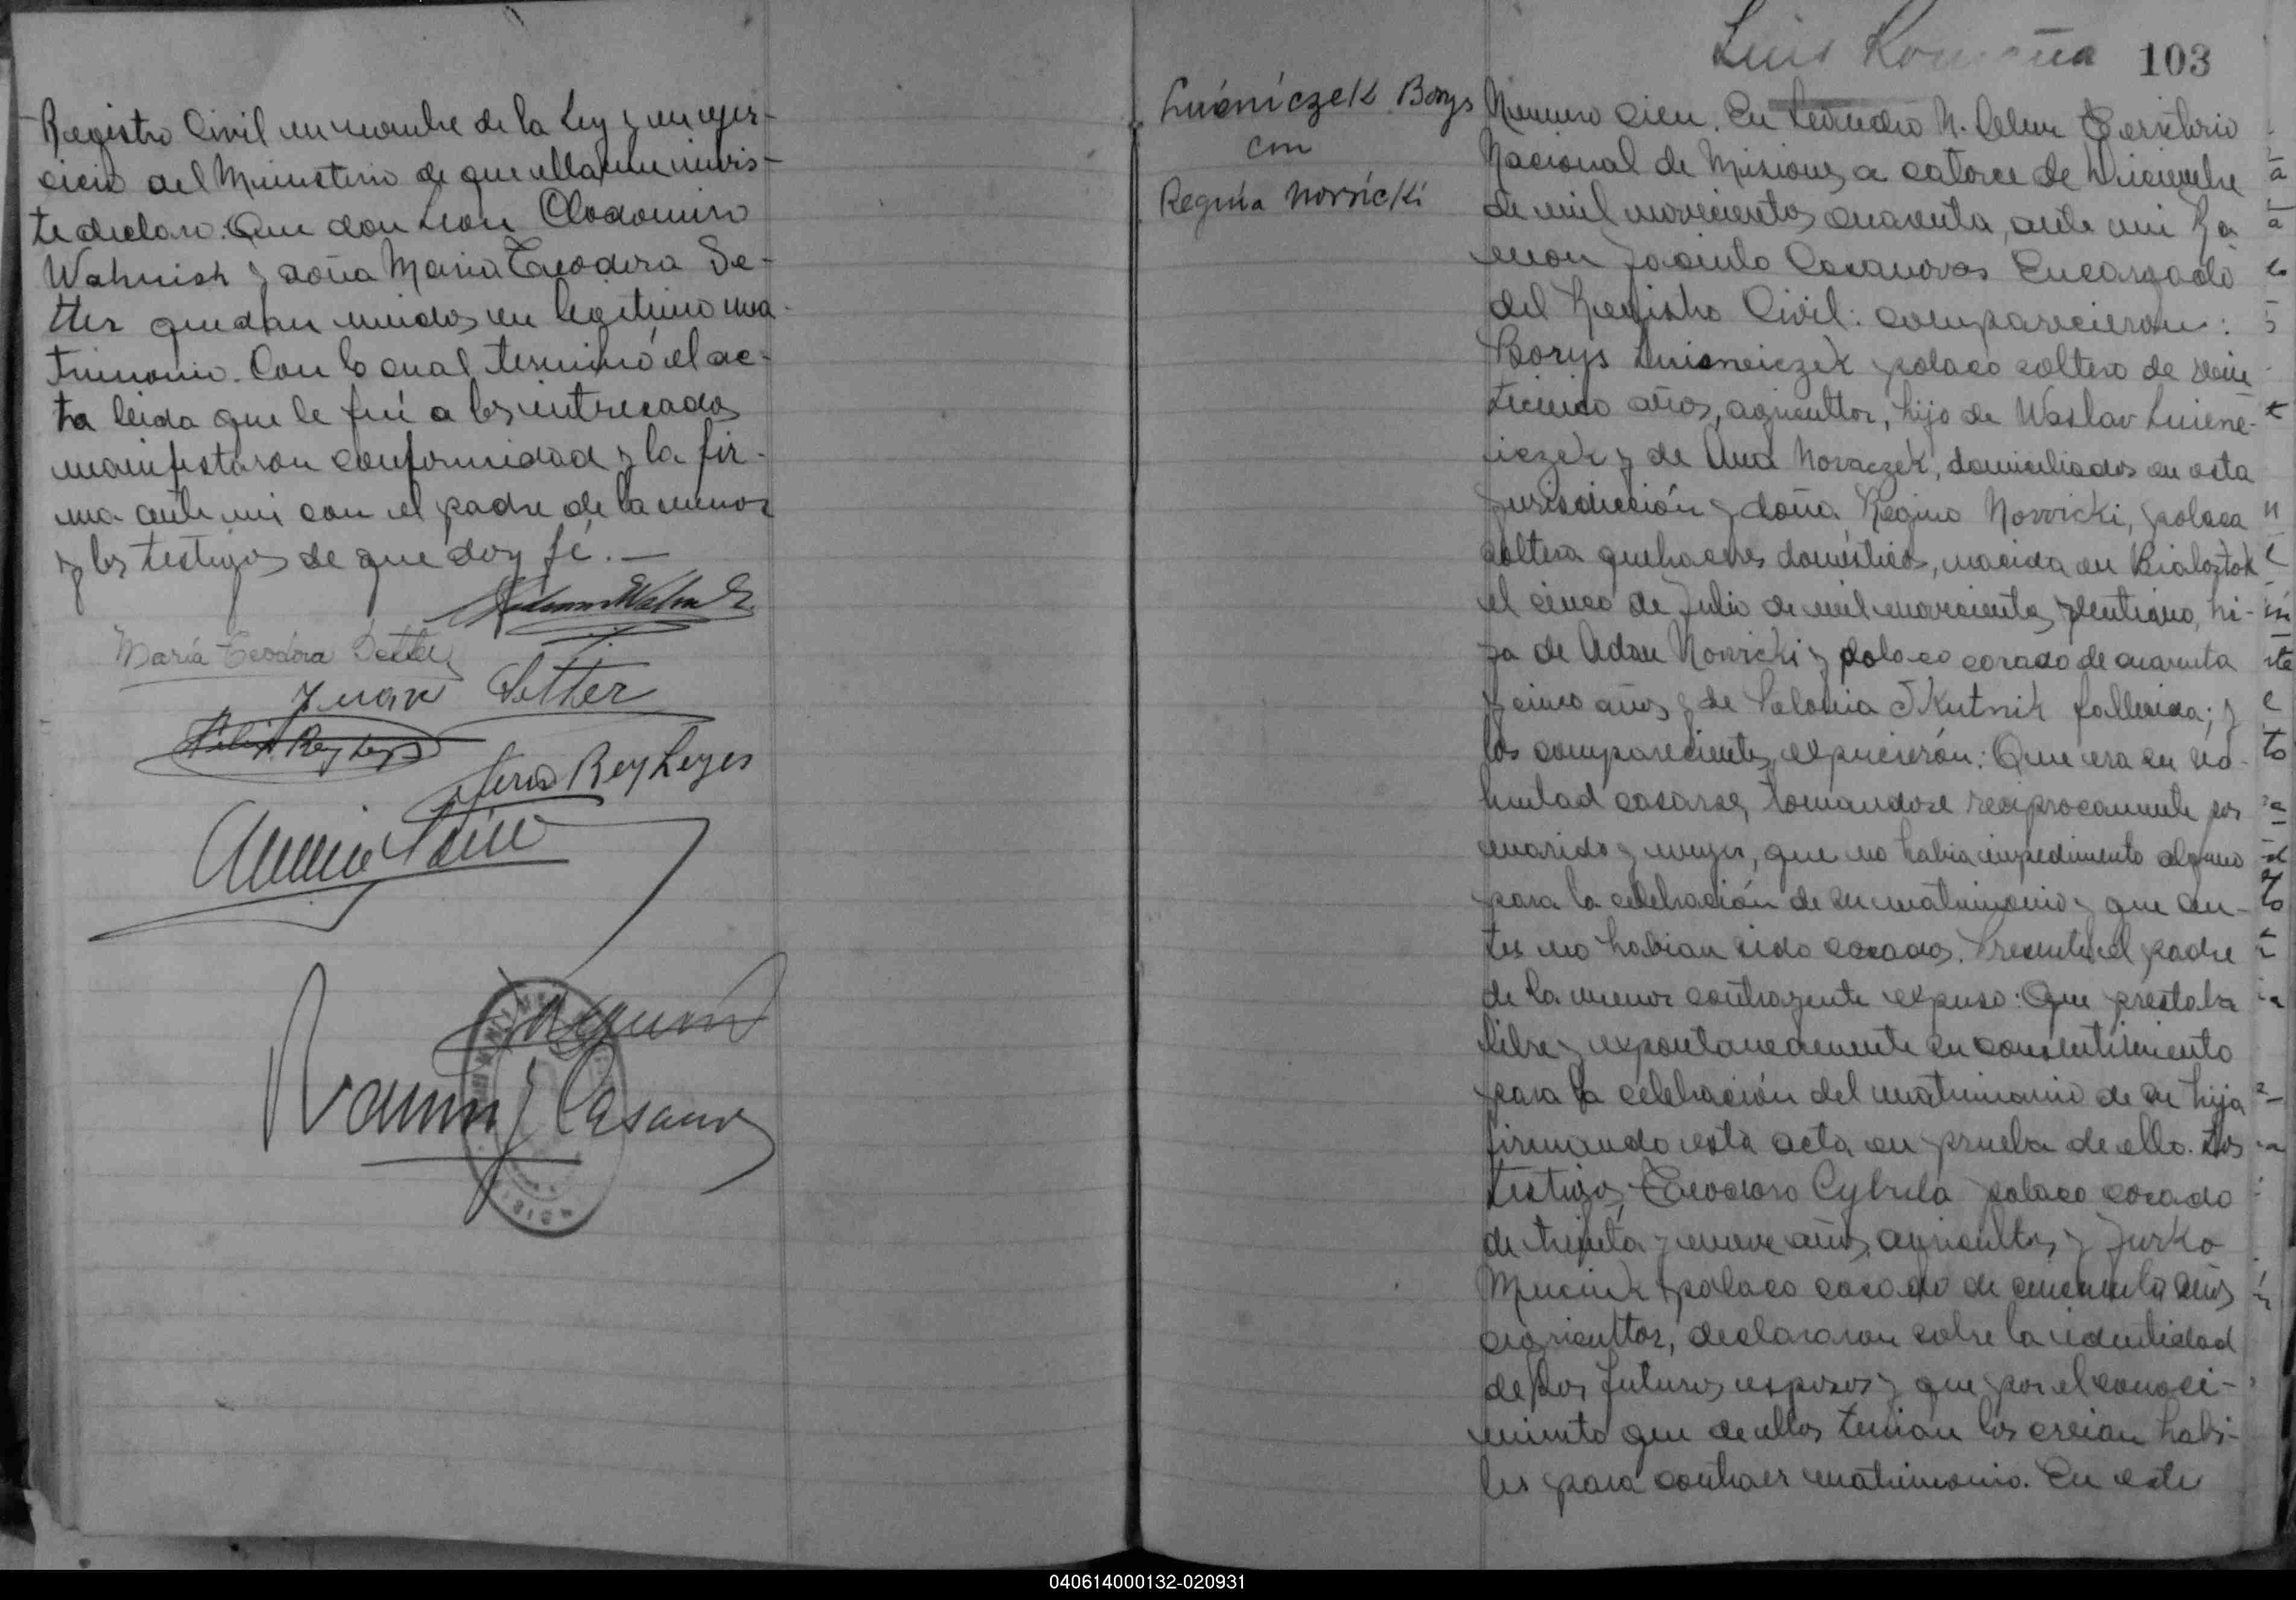 Registro Civil en nombre de la Ley y en ejer-
cicio del Ministerio de que ella me invis-
te declaro: Que don Leon Clodomiro
Wahnish y doña Maria Teodora Se-
tter quedan unidos en legitimo ma-
trimonio. Con lo cual terminó el ac-
ta leida que le fué a los interesados
manifestaron conformidad y la fir-
ma ante mi con el padre de la menor
y los testigos de que doy fé.—
María Teodora Setter
Juan Setter
Felix Rey Leyes
Rey Leyes
Ramon J Casanovas
Luis Romaña 103
Luiéniczek Borys
con
Regina Novricki
Numero cien. En Leandro N. Alem Territorio
Nacional de Misiones, a catorce de Diciembre
de mil novecientos cuarenta, ante mi Ra
mon Jacinto Casanovas Encargado
del Registro Civil: comparecieron:
Borys Luisneiczek polaco soltero de vein
ticinco años, agricultor, hijo de Waslav Luiene-
iczek y de Ana Novaczek, domiciliados en esta
jurisdicción y doña Regina Novricki, polaca
soltera quehaceres domésticos, nacida en Bialostok
el cinco de Julio de mil novecientos veintiuno, hi-
ja de Adan Novricki y polaco casado de cuarenta
y cinco años y de Polonia Skutnik fallecida; y
los comparecientes expucierón: Que era su vo-
luntad casarse, tomandose reciprocamente por
marido y mujer, que no habia impedimento alguno
para la celebración de su matrimonio y que an-
tes no habian sido casados. Presente el padre
de la menor contrayente expuso: Que prestaba
libre y expontaneamente su consentimiento
para la celebración del matrimonio de su hija
firmando esta acta en prueba de ello. Los
testigos, Teodoro Cybula polaco casado
de treinta y nueve años, agricultor, y Jurko
Muciuk polaco casado de cincuenta años
agricultor, declararon sobre la identidad
de los futuros esposos y que por el conoci-
miento que de ellos tenian los creian habi-
les para contraer matrimonio. En este
040614000132-020931